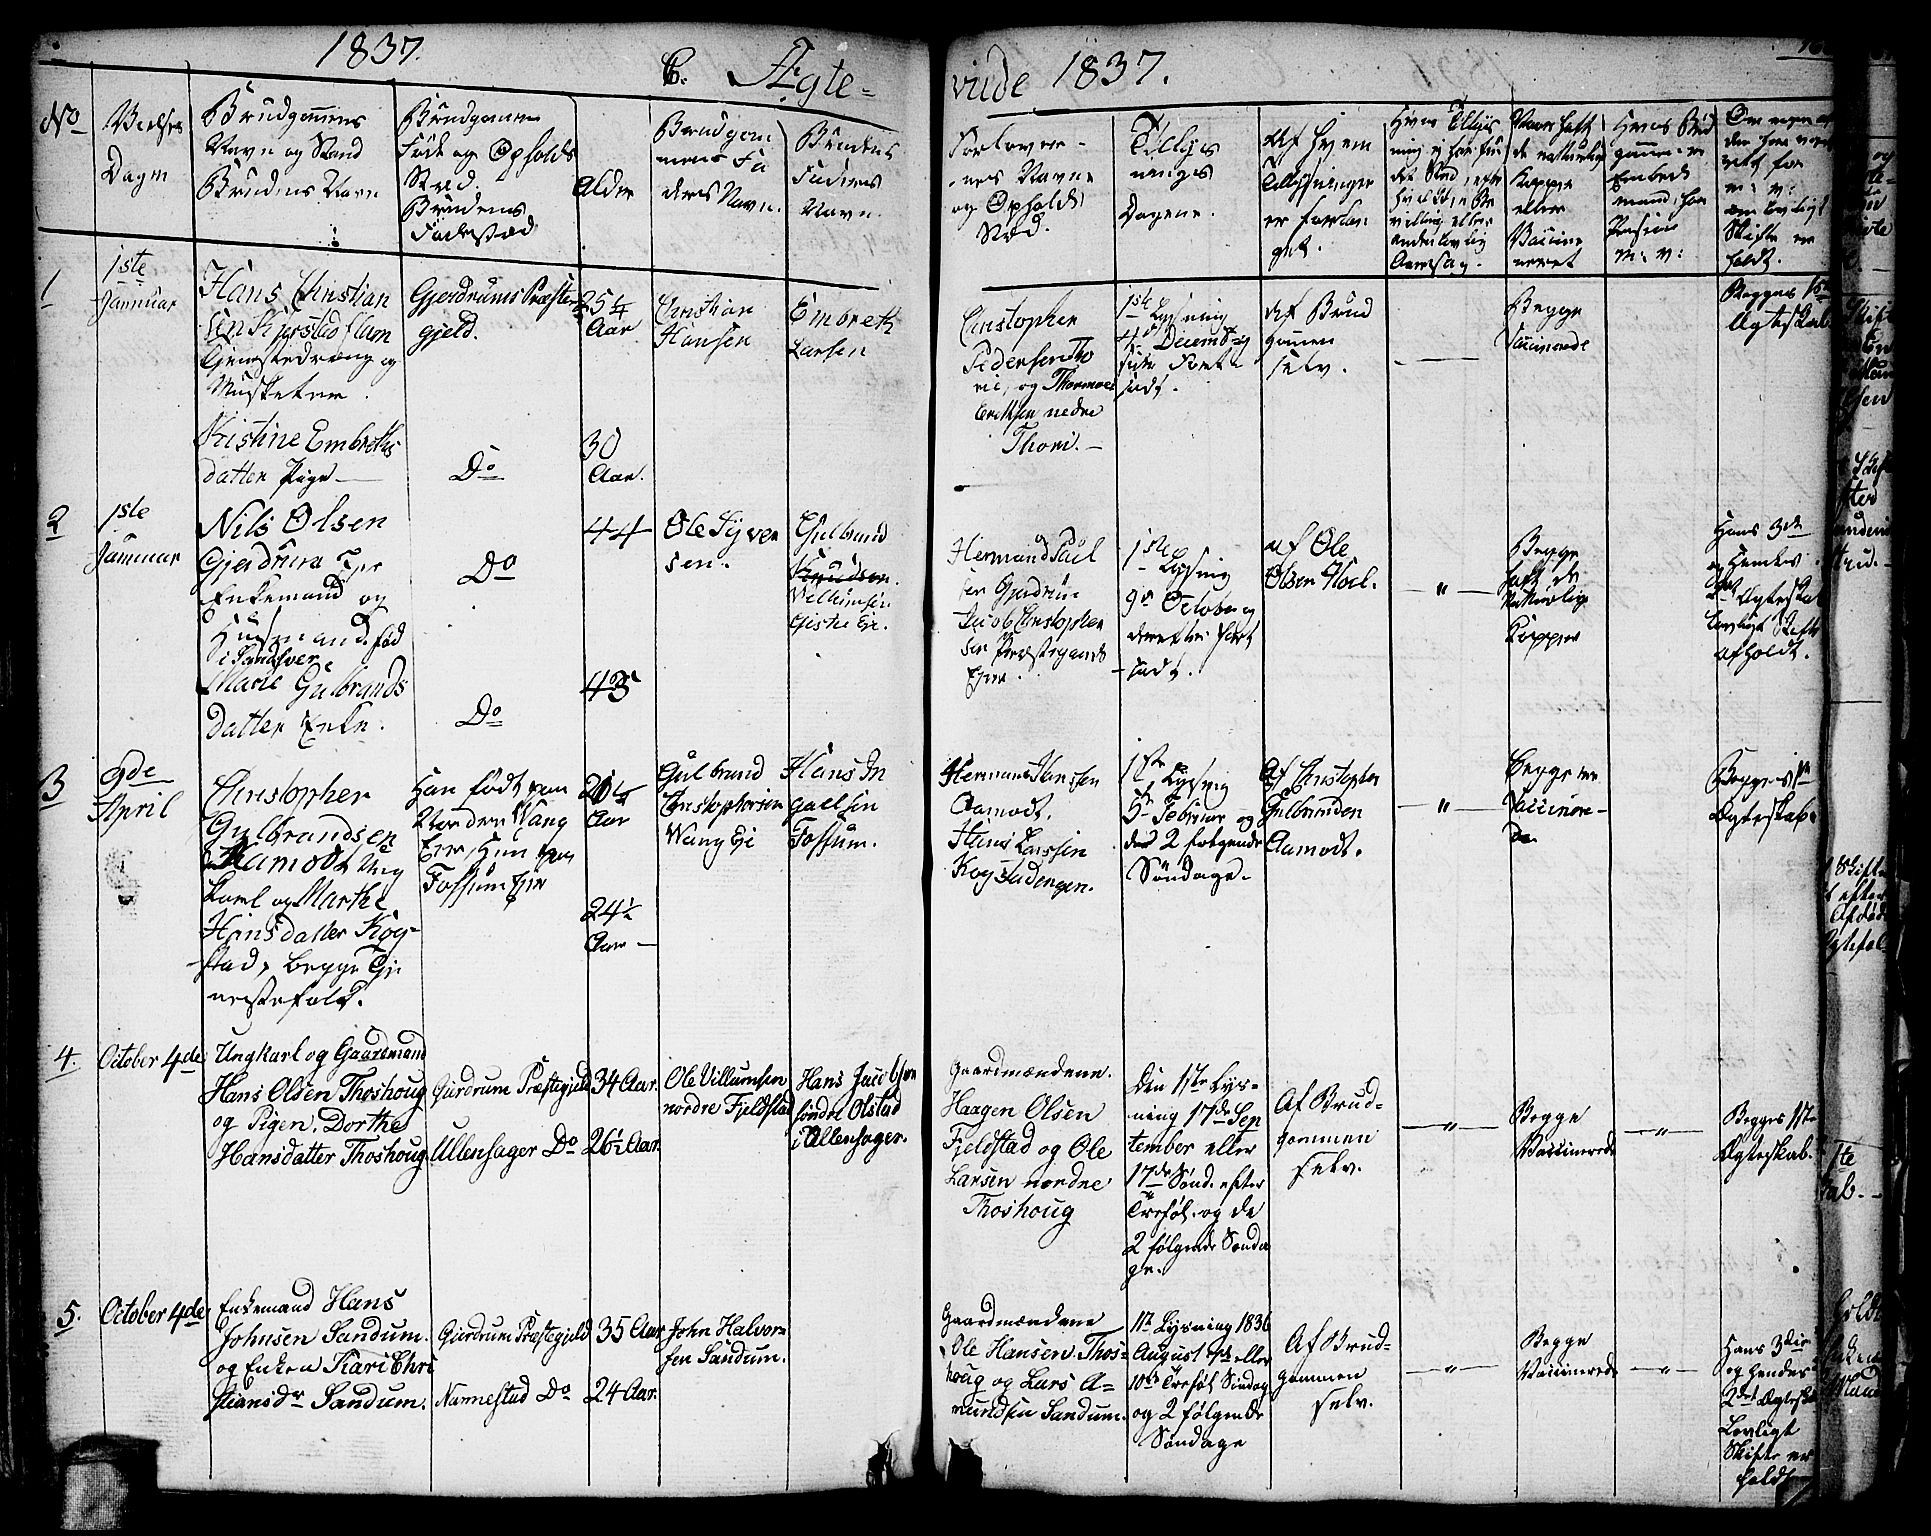 1837.
C. Ægte-
viede 1837.
No
Vielses
Dagen
Brudgommens
Navn og Stand
Brudens Navn
Brudgommens
Føde og Opholds
Sted.
Brudens
Fødested
Alder
Brudgom
mens Fa
ders Navn.
Brudens
Faders
Navn.
Forlover-
nes Navne
og Opholds
Sted.
Tillys
nings
Dagene.
Af hvem
Tillysninger
er forlan
get.
Hvis Tillys
ning ej har fun
det Sted, efter
hvad
villing eller
anden lovlig
Aarsag.
Hvor haft
de naturlige
Kopper
eller
Vaccine
neret
Hvis Brud
gommen er
Embeds
mand, om
Pension
m: v:
Om nogen af
dem har været
gift før
m: v:
om lovligt
Skifte er
holdt.
1
1ste
Januar
Hans Christian
sen Kjerstad
Tjenestedreng og
Musketeer.
Gjerdrums Præste
gjeld.
25 1/4
Aar
Christian
Hansen
Embreth
Larsen
Christopher
Pedersen Tho
ni, og Thormod
Eriksen nedre
Thoni.-
1ste Lysning
4de Decemb. og
siden Fort
sadt.
Af Brud
gommen
selv.
Begge
Vaccinerede
Begges 1ste
Ægteskab.
Kristine Embreths
datter Pige
Do
30
Aar.
2
1ste
Januar
Nils Olsen
Gjerdrum Ejer
Enkemand og
Husmand. fød
i Sandsver
Do
44
Ole Syver
sen.
Gulbrand
Knudsen.
Hermand Paul
sen Gjerdrum
Jacob Christopher
sen Præstegaards
Ejer.
1ste Lysning
9de October og
derefter fort
sadt.
af Ole
Olsen Hoel.
"
Begge
haft de
Naturlige
Kopper
Hans 3die
og Hendes
2det Ægteskab
Lovligt Skifte
afholdt.
Marie Gulbrands
datter Enke.
Do
43
3
9de
April
Christopher
Gulbrandsen
Aamodt Ung
karl og Marthe
Hansdatter Kog-
stad, begge Tje
nestefolk.
Han født paa
Nordre Wang
Eier, Hun paa
Fossum Ejer
26 1/2
Aar
24 1/2
Aar -
Gulbrand
Christophersen
Wang Ei
Hans In
gvelsen
Fossum.
Herman Hansen
Aamodt,
Hans Larsen
Kogstadengen.
1ste Lysning
5te Februar og
de 2 følgende
Søndage.
Af Christopher
Gulbrandsen
Aamodt.
"
Begge ere
Vaccinere-
de
Begges 1ste
Ægteskab.
4.
October 4de
Ungkarl og Gaardmand
Hans Olsen Thoshoug
og Pigen. Dorthe
Hansdatter Thoshoug.
Gjerdrum Præstegjeld
Ullensager Do
34 Aar.
26 1/2 Aar.
Ole Villumsen
nordre Fjeldstad
Hans Jacobsen
søndre Olstad
i Ullensager.
Gaardmændene.
Haagen Olsen
Fjeldstad og Ole
Larsen nordre
Thoshoug
Den 1ste Lys-
ning 17de Sep
tember eller
17de Sønd. efter
Trefol. og de
2 følgende Sønda
ge.
Af Brud-
gommen
selv.
"
Begge
Vaccinerede
"
Begges 1ste
Ægteskab.
5.
October 4de
Enkemand Hans
Johnsen Sandum.
og Enken Kari Chri
stiansdr Sandum.
Gjerdrum Præstegjeld
Nannestad Do
35 Aar
24 Aar.
John Halvor-
sen Sandum.
Gaardmændene
Ole Hansen Thos-
houg og Lars A-
mundsen Sandum.
1ste Lysning 1836
August eller
10de Trefol Søndag
og 2 følgende
Søndage
Af Brud-
gommen
selv.
"
Begge
Vaccinerede
"
Hans 3die
og Hendes
2det Ægteskab
Lovligt
Skifte er
holdt